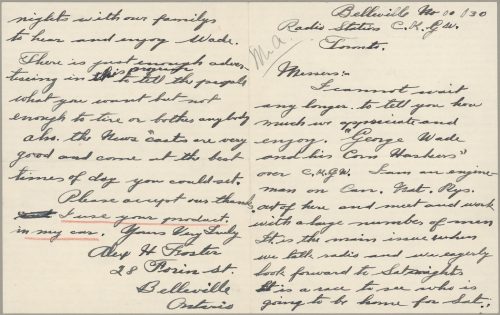 Belleville No 10/30
Radio Station C.K.G.W.
Toronto.
M.A.
Messers:-
I cannot wait
any longer to tell you how
much we appreciate and
enjoy. "George Wade
and his Corn Huskers"
over C.K.G.W. I am an engine-
man on Can. Nat. Rys.
out of here and meet and work
with a large number of men
It is the main issue when
we talk radio and we eagerly
look forward to Sat nights
it is a race to see who is
going to be home for Sat.
nights with our familys
to hear and enjoy Wade.
There is just enough adver-
tiseing in this program
to tell the people
what you want but not
enough to tire or bother anybody
also. the News casts are very
good and come at the best
times of day you could set.
Please accept our thanks
I use your product.
in my car. Yours Very Truly
Alex H Foster
28 St.
Belleville
Ontario